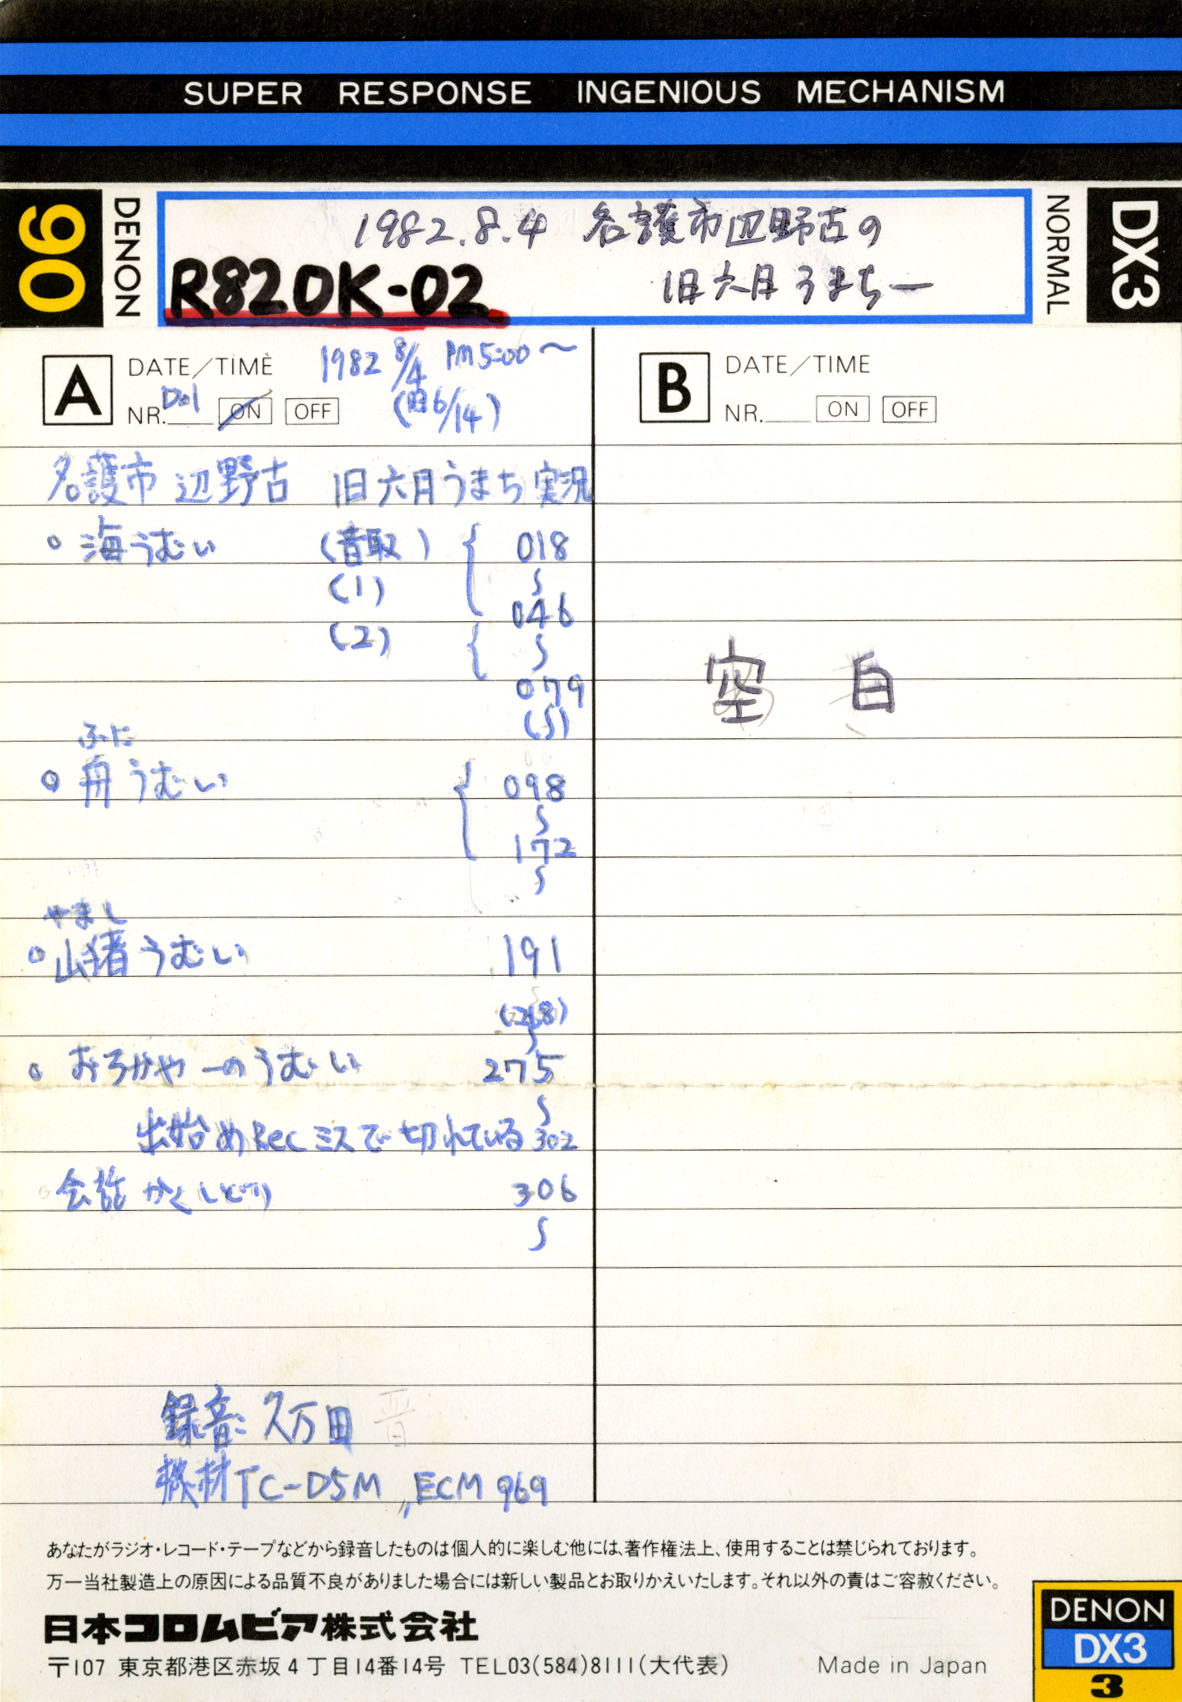 SUPER RESPONSE INGENIOUS MECHANISM
90
DENON
1982.8.4 名護市辺野古の
旧六月うまちー
R82OK-02
NORMAL
DX3
A
DATE/TIME 1982 8/4 PM5:00〜
NR. Dol ON OFF (旧6/14)
名護市 辺野古 旧六月うまち実況
○ 海うむい (音取) { 018
(1) 〜
046
(2) { 〜
079
(〜)
ふに
○ 舟うむい { 098
〜
172
〜
やまし
○ 山猪うむい 191
〜
(268)
〜
○ おろかやーのうむい 275
〜
出始めRecミスで切れている 302
会話かくしどり 306
〜
録音: 久万田 晋
機材 TC-D5M, ECM 969
B
DATE/TIME
NR. ON OFF
空白
あなたがラジオ・レコード・テープなどから録音したものは個人的に楽しむ他には、著作権法上、使用することは禁じられております。
万一当社製造上の原因による品質不良がありました場合には新しい製品とお取りかえいたします。それ以外の責はご容赦ください。
日本コロムビア株式会社
〒107 東京都港区赤坂4丁目14番14号 TEL03(584)8111(大代表) Made in Japan
DENON
DX3
3